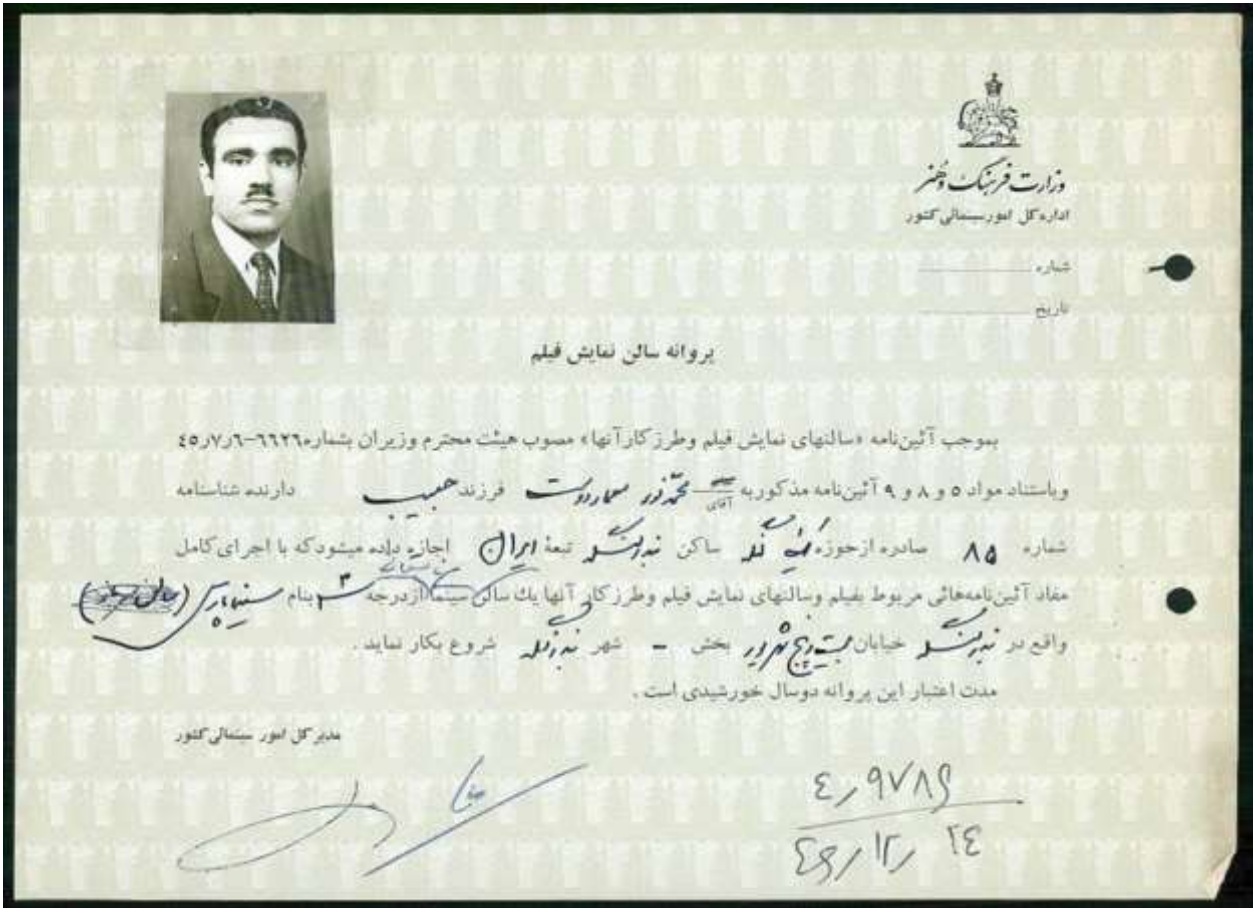 وزارت فرهنگ و هنر
اداره کل امور سینمائی کشور
شماره
تاریخ
پروانه سالن نمایش فیلم
بموجب آئین‌نامه «سالنهای نمایش فیلم وطرز کار آنها» مصوب هیئت محترم وزیران بشماره ٦٦٢٦-٤٥٫٧٫٦
وباستناد مواد ٥ و ٨ و ٩ آئین‌نامه مذکور به آقای محمد نور معماردوست فرزند حبیب دارنده شناسنامه
شماره ۸۵ صادره از حوزه ساکن بندرلنگه تبعهٔ ایران اجازه داده میشود که با اجرای کامل
مفاد آئین‌نامه‌هائی مربوط بفیلم وسالنهای نمایش فیلم وطرز کار آنها یك سالن سینما تابستانی ازدرجه ۳ بنام سینما پارس
واقع در بندرلنگه خیابان بیست و پنج شهریور بخش - شهر بندرلنگه شروع بکار نماید .
مدت اعتبار این پروانه دوسال خورشیدی است .
مدیر کل امور سینمائی کشور
٤٫٩٧٨٩
٢٤٫١٢٫٤٦